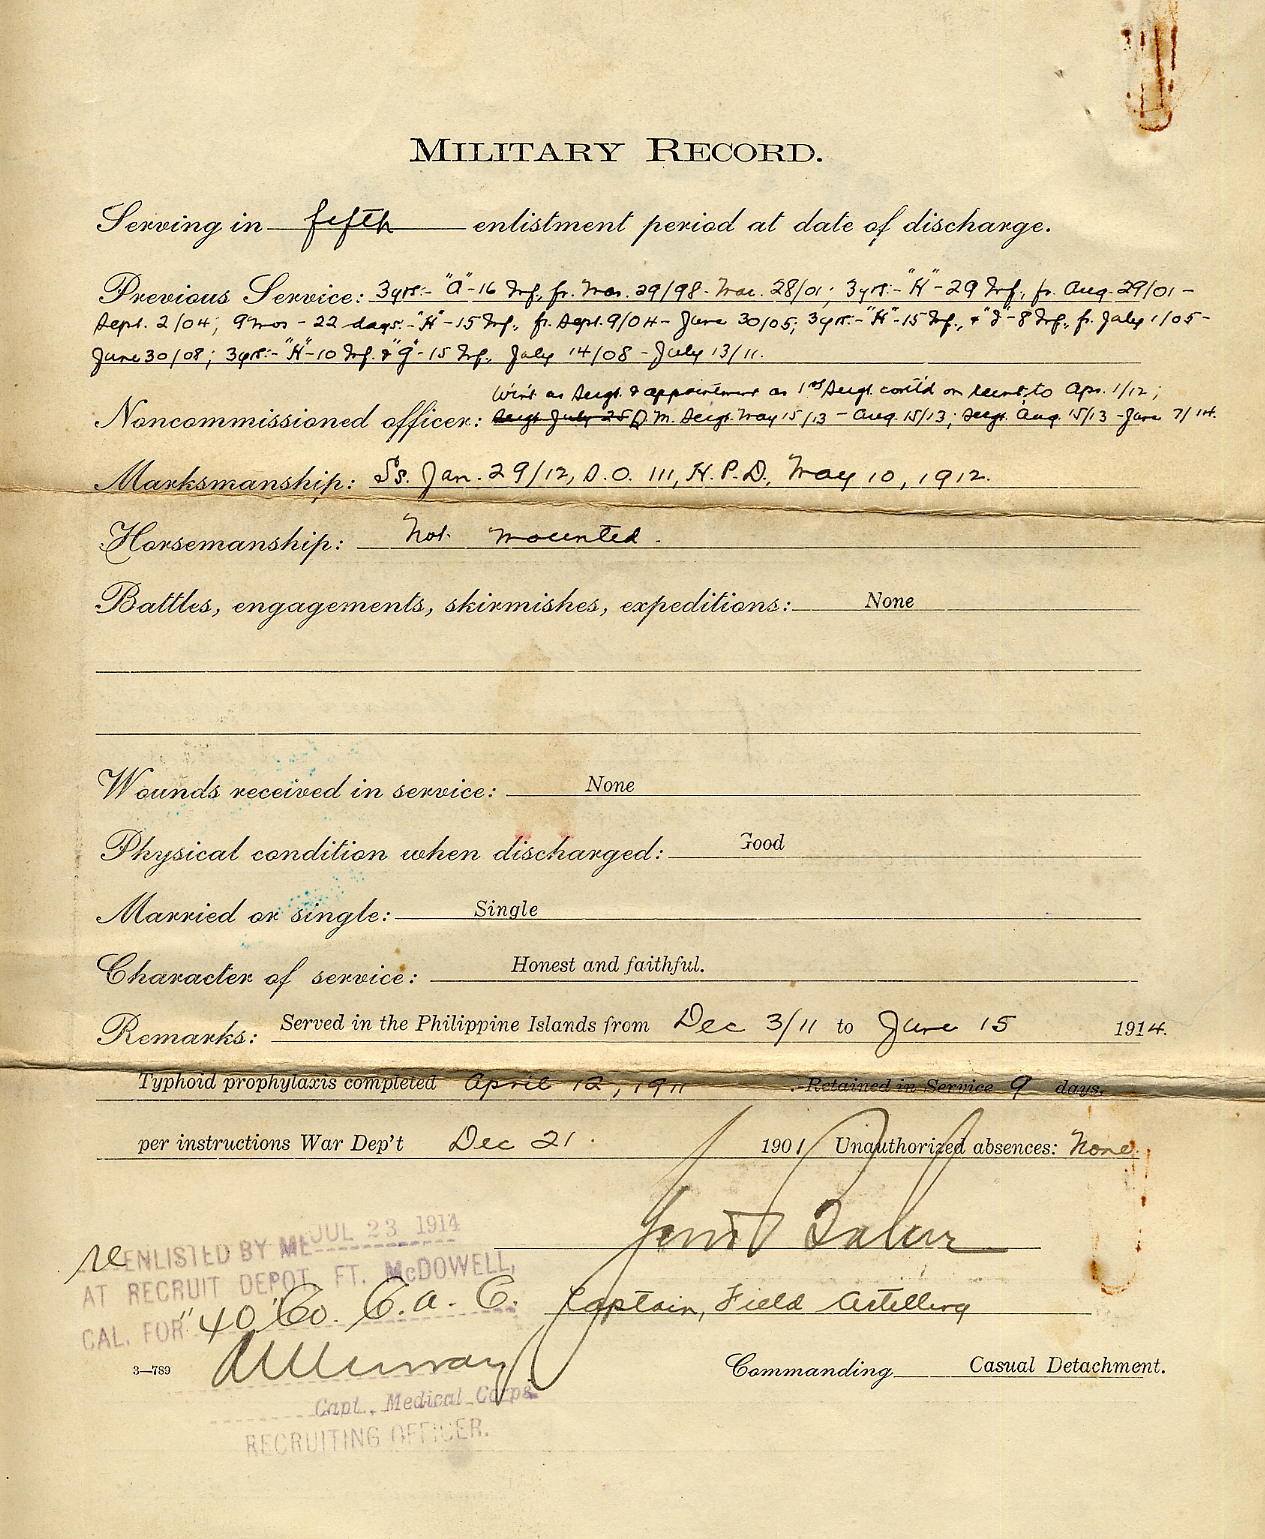 MILITARY RECORD.
Serving in fifth enlistment period at date of discharge.
Previous Service: 3yrs:- "A"-16 Inf., fr. Mar. 29/98- Mar. 28/01; 3yrs:- "H"-29 Inf., fr. Aug. 29/01-
Sept. 2/04; 9mos-22 days.-"H"-15 Inf., fr. Sept. 9/04- June 30/05; 3yrs:-"H"-15 Inf., & "I"-8 Inf., fr. July 1/05-
June 30/08; 3yrs:-"H"-10 Inf. & "G"-15 Inf., July 14/08-July 13/11.
as Sergt. & appointment as 1st Sergt. cont'd on to Apr. 1/12;
Noncommissioned officer: Sergt July 25 Q.M. Sergt. May 15/13 - Aug. 15/13; Sergt. Aug. 15/13 -June 7/14.
Marksmanship: Ss. Jan. 29/12, S.O. 111, H.P.D., May 10, 1912.
Horsemanship: Not mounted.
Battles, engagements, skirmishes, expeditions: None
Wounds received in service: None
Physical condition when discharged: Good
Married or single: Single
Character of service: Honest and faithful.
Remarks: Served in the Philippine Islands from Dec 3/11 to June 15 1914.
Typhoid prophylaxis completed April 12, 1911. Retained in Service 9 days.
per instructions War Dep't Dec 21. 1901 Unauthorized absences: None.
reENLISTED BY ME JUL 23 1914
AT RECRUIT DEPOT, FT. McDOWELL,
CAL. FOR "40" Co. C.A.C.
Captain, Field Artillery
3—789
Murray
Commanding Casual Detachment.
Capt., Medical Corps.
RECRUITING OFFICER.